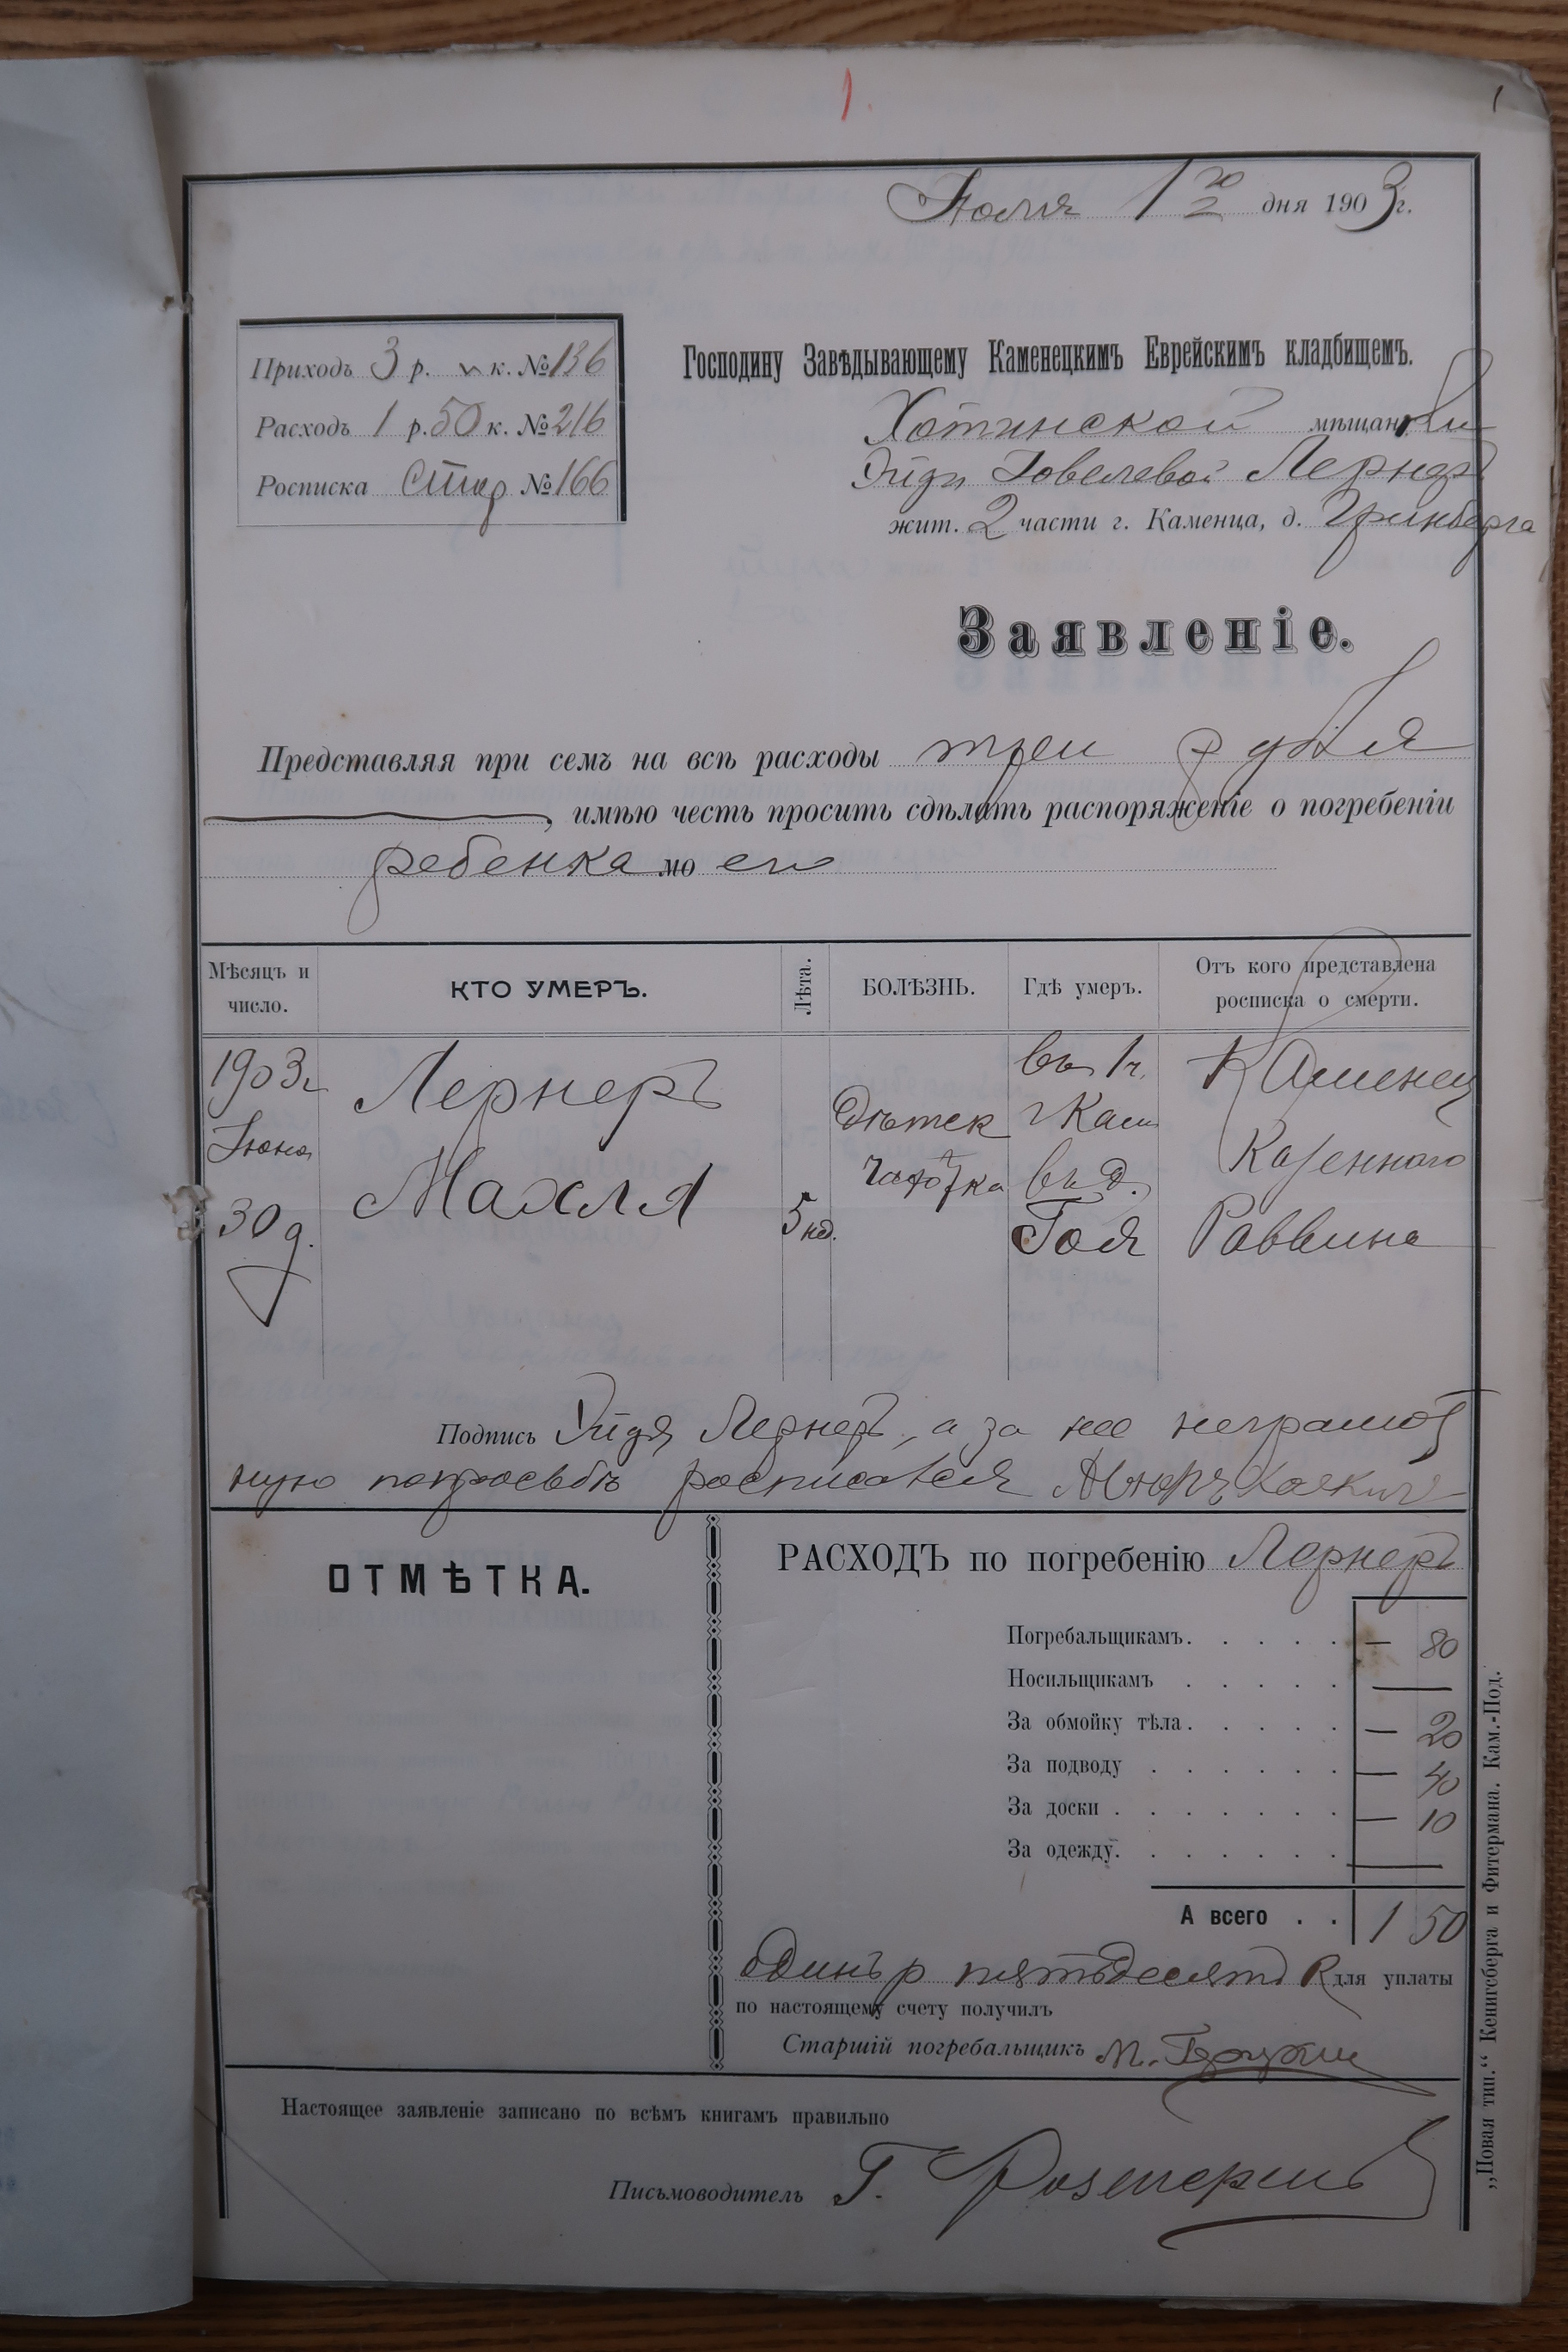 1.
1
Іюля 1 го/2 дня 1903 г.
Приходъ 3 р. к. № 136
Расходъ 1 р. 50 к. № 216
Росписка Стар № 166
Господину Завѣдывающему Каменецкимъ Еврейскимъ кладбищемъ.
Хотинской мѣщанки
Эйди Іовелевой Лернеръ
жит. 2 части г. Каменца, д. Гринберга
Заявленіе.
Представляя при семъ на всѣ расходы три рубля
, имѣю честь просить сдѣлать распоряженіе о погребеніи
ребенка моего
Мѣсяцъ и число.
КТО УМЕРЪ.
Лѣта.
БОЛѢЗНЬ.
Гдѣ умеръ.
Отъ кого представлена росписка о смерти.
1903г Іюня 30 д.
Лернеръ Махля
5 нед.
Дѣтск чахотка
въ 1 ч. г Кам въ д. Гоя
Каменец Казеннаго Раввина
Подпись Эйдя Лернеръ, а за нее неграмот
ную по просьбѣ росписался
ОТМѢТКА.
РАСХОДЪ по погребенію Лернеръ
Погребальщикамъ. — 80
Носильщикамъ —
За обмойку тѣла. — 20
За подводу — 40
За доски — 10
За одежду. —
А всего 1 50
одинъ р пятьдесятъ к для уплаты
по настоящему счету получилъ
Старшій погребальщикъ М.
Настоящее заявленіе записано по всѣмъ книгамъ правильно
Письмоводитель Г.
„Новая тип.“ Кенигсберга и Фитермана. Кам.-Под.